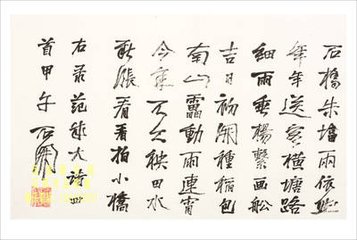 石橋朱塔兩依然
年年送客橫塘路
細雨垂楊繫畫船
吉日初開種稻包
南山雷動雨連宵
今年不欠秧田水
新漲看看拍小橋
右录范成大詩四
首甲午石